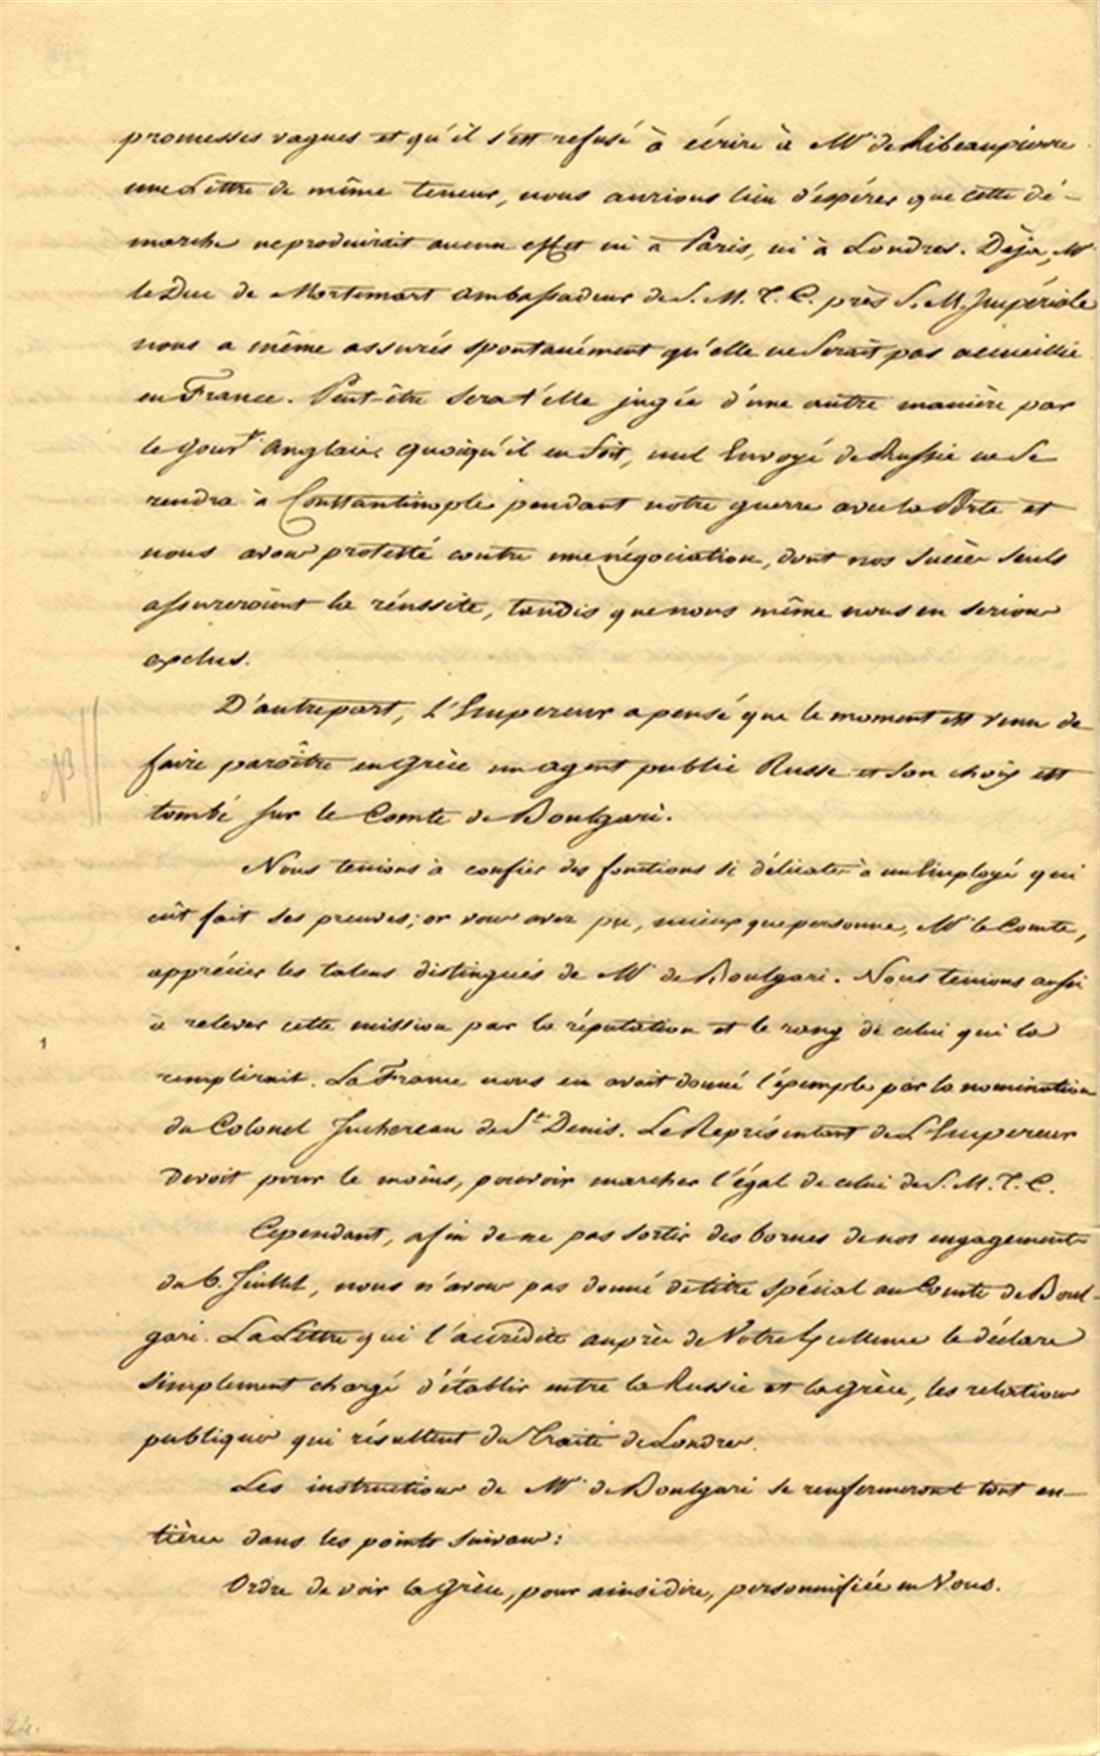 promesses vagues et qu'il s'est refusé à écrire à Mr de Ribeaupierre
une Lettre de même teneur, nous aurions lieu d'espérer que cette dé-
marche ne produirait aucun effet ni à Paris, ni à Londres. Dèja, Mr
le Duc de Mortemart ambassadeur de S. M. T. C. près S. M. Impériale
nous a même assurés spontanément qu'elle ne serait pas accueillie
en France. Peut-être sera t'elle jugée d'une autre manière par
le Gouvt Anglais, quoiqu'il en soit, nul Envoyé de Russie ne se
rendra à Constantinople pendant notre guerre avec la Porte et
nous avons protesté contre une négociation, dont nos succès seuls
assureroient la réussite, tandis que nous même nous en serions
exclus.
D'autre part, l'Empereur a pensé que le moment est venu de
NB faire paroître en Grèce un agent public Russe et son choix est
tombé sur le Comte de Boulgari.
Nous tenions à confier des fonctions si délicates à un Employé qui
eût fait ses preuves; or vous avez pu, mieux que personne, Mr le Comte,
apprécier les talens distingués de Mr de Boulgari. Nous tenions aussi
à relever cette mission par la réputation et le rang de celui qui la
remplirait. La France nous en avait donné l'éxemple par la nomination
du Colonel Juchereau de St Denis. Le Représentant de L'Empereur
devoit pour le moins, pouvoir marcher l'égal de celui de S. M. T. C.
Cependant, afin de ne pas sortir des bornes de nos engagements
du 6. Juillet, nous n'avons pas donné de titre spécial au Comte de Boul-
gari. La Lettre qui l'accrédite auprès de Votre Excellence le déclare
simplement chargé d'établir entre la Russie et la Grèce, les relations
publiques qui résultent du Traité de Londres.
Les instructions de Mr de Boulgari se renfermeront tout en-
tières dans les points suivans:
Ordre de voir la Grèce, pour ainsi dire, personnifiée en Vous.
24.